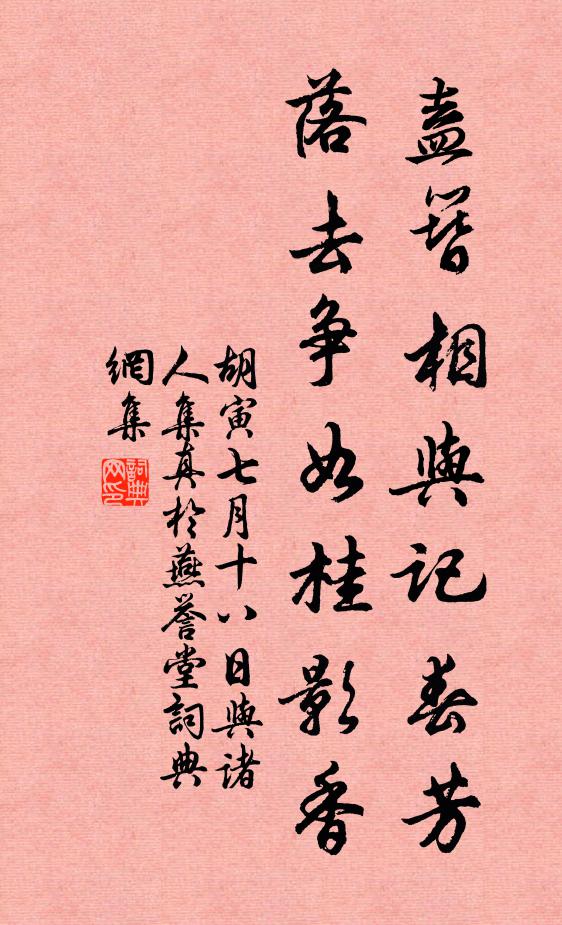 盍簪相與記春芳
落去争如桂影香
胡寅七月十八日與諸
人集真於燕譽堂詞典
網集
詞典
网印